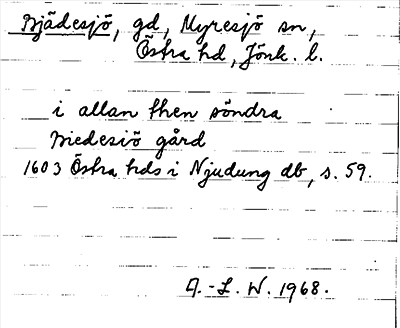 Bjädesjö, gd, Myresjö sn,
Östra hd, Jönk. l.
i allan then söndra
Biedesiö gård
1603 Östra hds i Njudung db, s. 59.
A.-L. W. 1968.